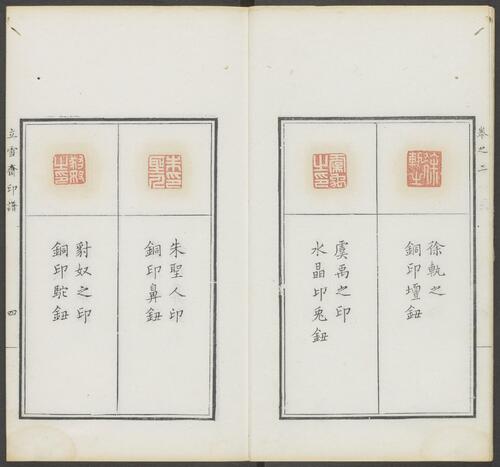 卷之二
徐軌之
銅印壇鈕
虞禹之印
水晶印兎鈕
朱聖人印
銅印鼻鈕
豺奴之印
銅印駝鈕
立雪齋印譜
四